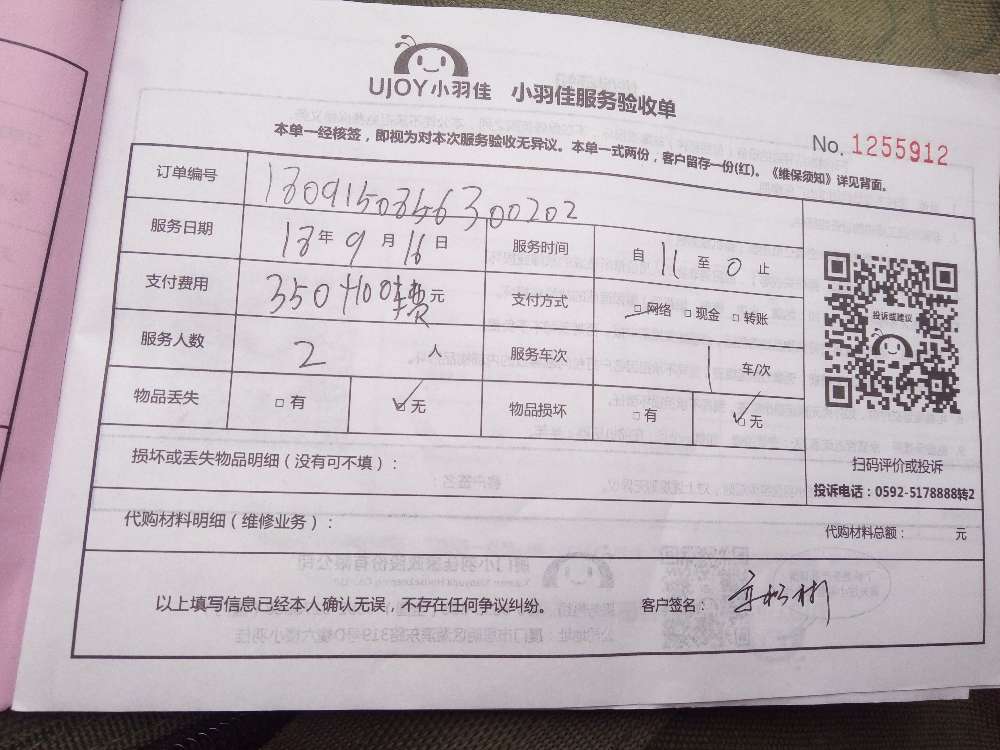 UJOY小羽佳 小羽佳服务验收单
本单一经核签，即视为对本次服务验收无异议。本单一式两份，客户留存一份(红)。《维保须知》详见背面。
No. 1255912
订单编号 1809150856300202
服务日期 18年9月16日 服务时间 自11至0止
支付费用 350+100 元 支付方式 □网络 □现金 □转账
服务人数 2人 服务车次 1车/次
物品丢失 □有 ☑无 物品损坏 □有 ☑无
投诉或建议
扫码评价或投诉
投诉电话：0592-5178888转2
损坏或丢失物品明细（没有可不填）：
代购材料明细（维修业务）：
代购材料总额： 元
以上填写信息已经本人确认无误，不存在任何争议纠纷。 客户签名：